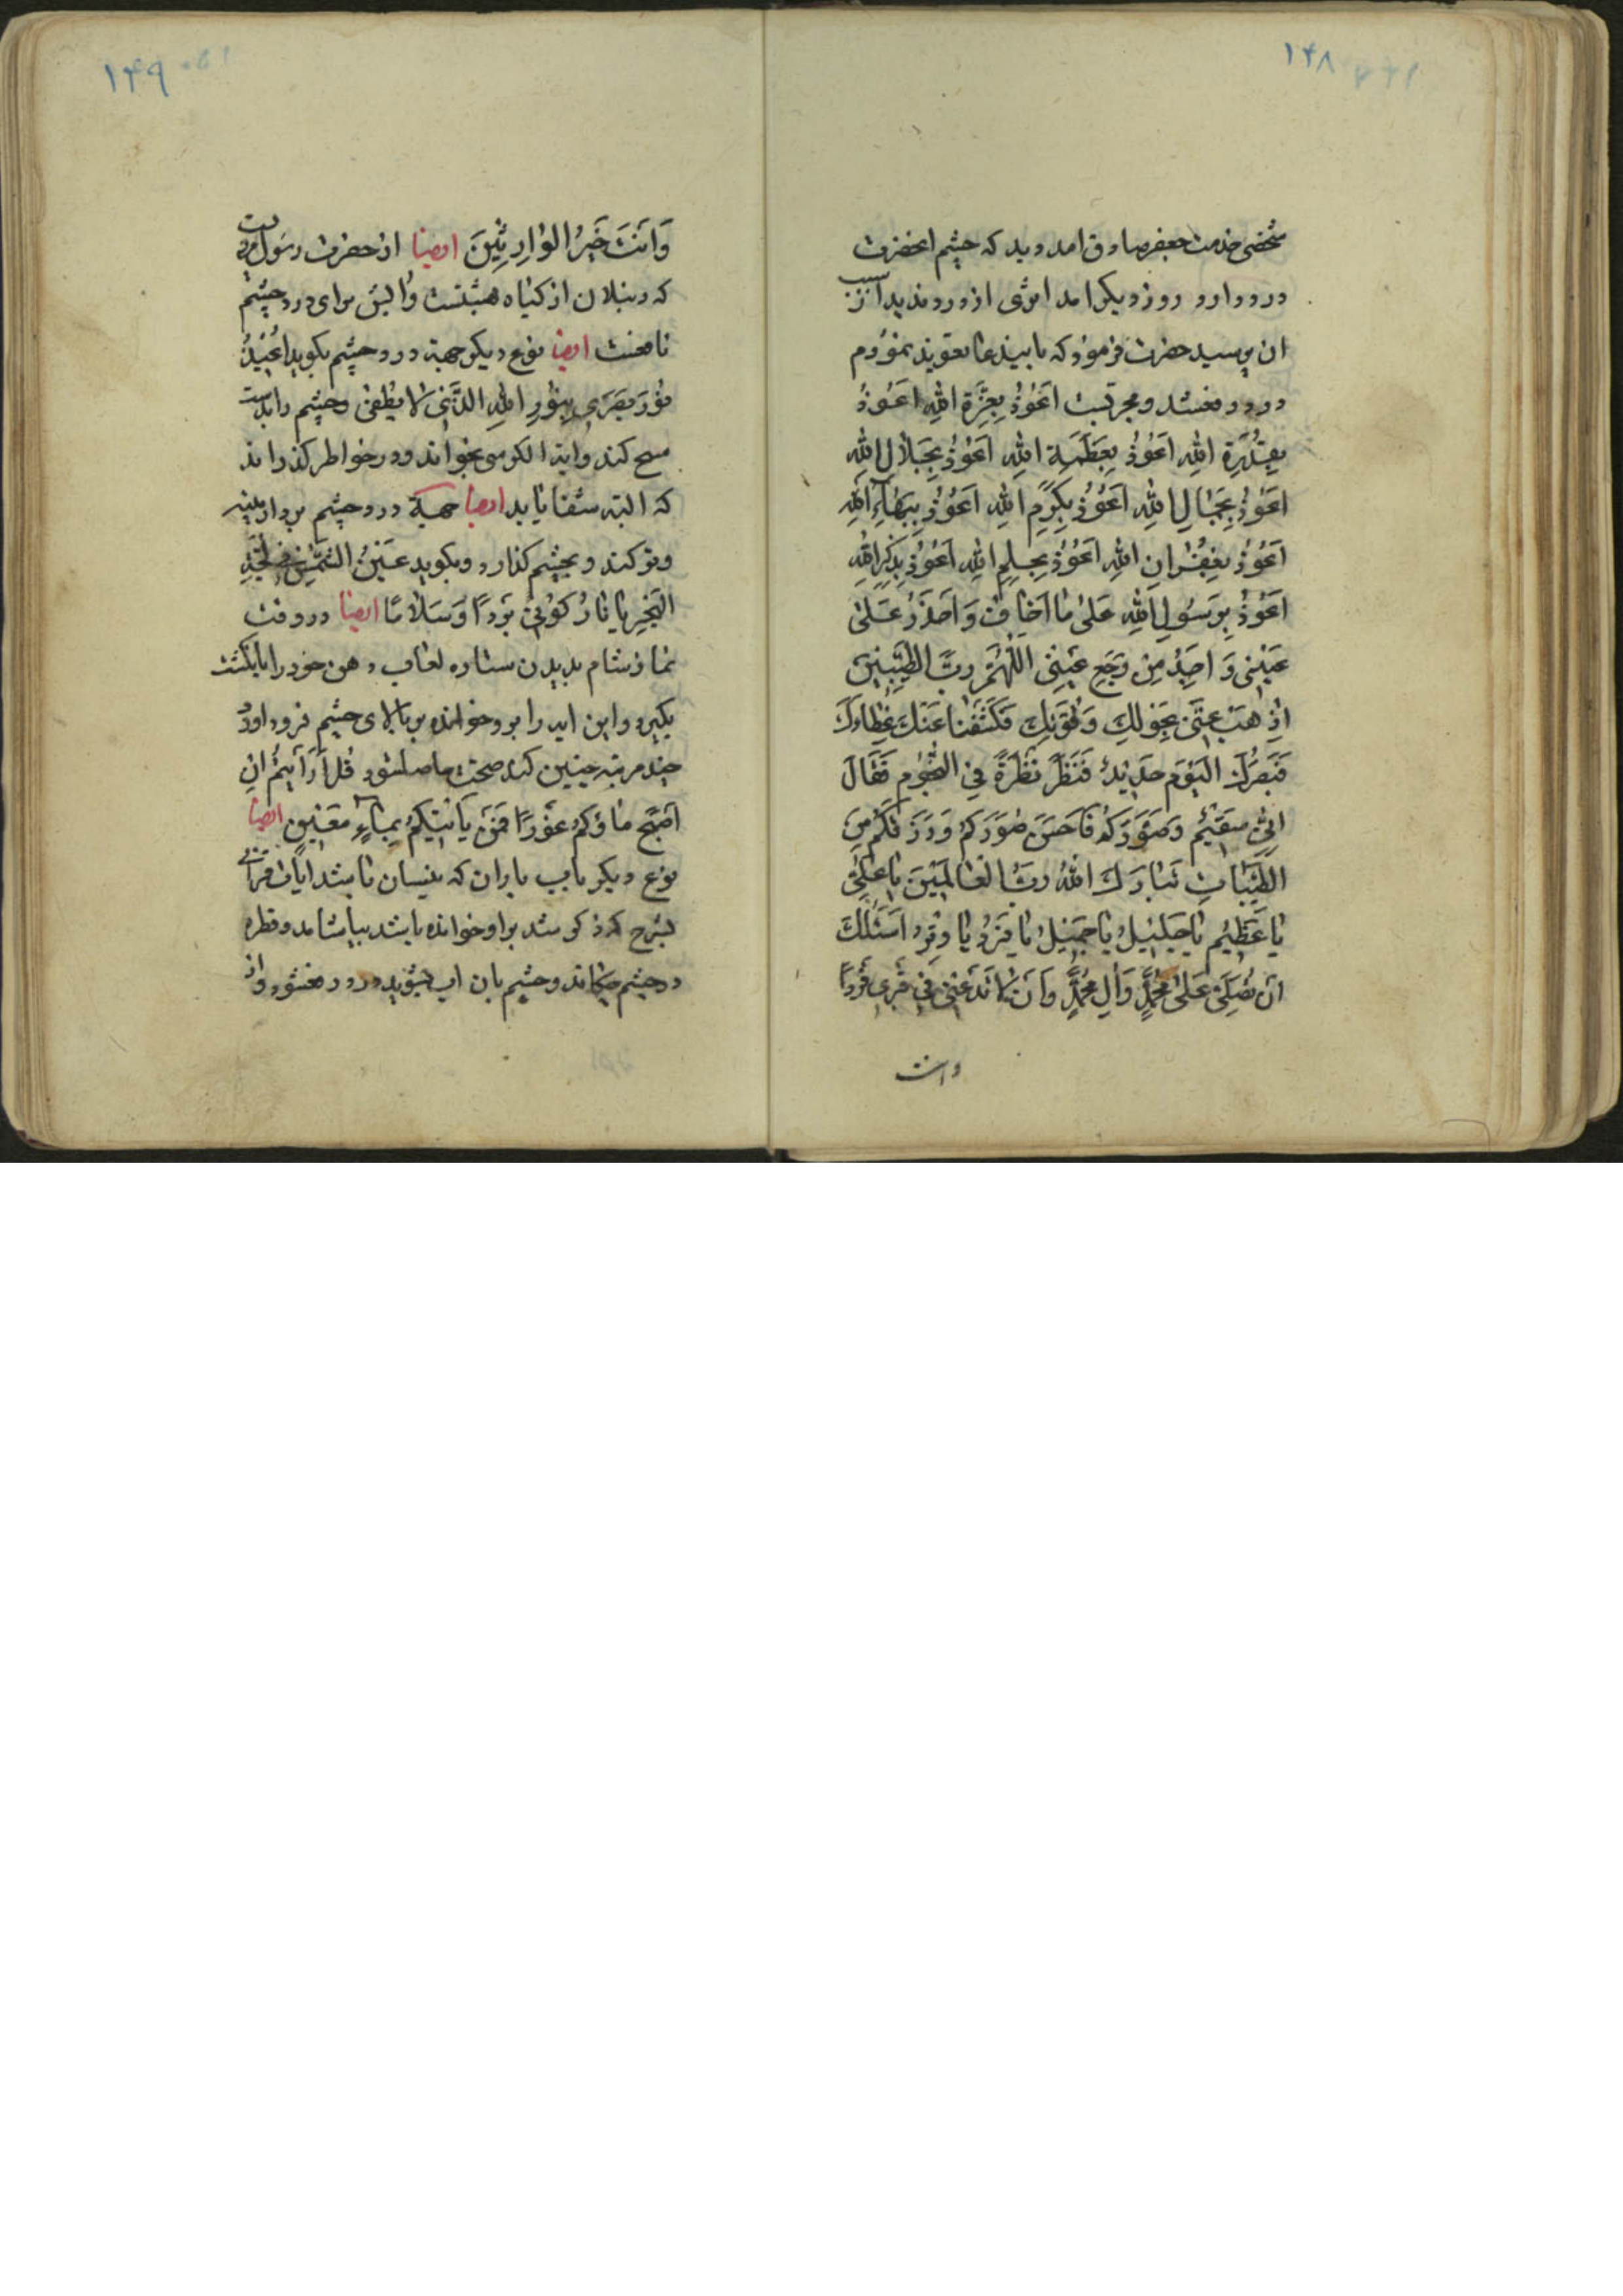 ۱۴۸
شخصی خدمت جعفر صادق امد دید که چشم انحضرت
درد دارد روز دیگر امد اثری از درد ندید از سبب
ان پرسید حضرت فرمود که باینها تعویذ نمودم
درد دفع شد و مجربست اَعُوذُ بِعِزَّةِ اللهِ اَعُوذُ
بِقُدْرَةِ اللهِ اَعُوذُ بِعَظَمَةِ اللهِ اَعُوذُ بِجَلالِ اللهِ
اَعُوذُ بِجَمالِ اللهِ اَعُوذُ بِكَرَمِ اللهِ اَعُوذُ بِبَهاۤءِ اللهِ
اَعُوذُ بِغُفْرانِ اللهِ اَعُوذُ بِحِلْمِ اللهِ اَعُوذُ بِذِكْرِ اللهِ
اَعُوذُ بِرَسُولِ اللهِ عَلىٰ ما اَخافُ وَاَحْذَرُ عَلىٰ
عَيْنى وَاَجِدُ مِنْ وَجَعِ عَيْنى اَللّهُمَّ رَبَّ الطَّيِّبينَ
اِذْهَبْ عَنّى بِحَوْلِكَ وَقُوَّتِكَ فَكَشَفْنا عَنْكَ غِطاۤءَكَ
فَبَصَرُكَ الْيَوْمَ حَديدٌ فَنَظَرَ نَظْرَةً فِى النُّجُومِ فَقالَ
اِنّى سَقيمٌ وَصَوَّرَكُمْ فَاَحْسَنَ صُوَرَكُمْ وَرَزَقَكُمْ مِنَ
الطَّيِّباتِ تَبارَكَ اللهُ رَبُّ الْعالَمينَ يا عَلِىُّ
يا عَظيمُ يا جَليلُ يا جَميلُ يا فَرْدُ يا وِتْرُ اَسْئَلُكَ
اَنْ تُصَلِّىَ عَلىٰ مُحَمَّدٍ وَاٰلِ مُحَمَّدٍ وَاَنْ لا تَدَعَنى فى قَبْرى فَرْدًا
وانت
۱۴۹
وَاَنْتَ خَيْرُ الْوارِثينَ ایضا از حضرت رسول مرویست
که دنبلان از گیاه بهشتست وابش برای درد چشم
نافعست ایضا نوع دیگر جهة درد چشم بگوید اُعيذُ
نُورَ بَصَرى بِنُورِ اللهِ الَّذى لا يُطْفىٰ و چشم را بدست
مسح کند و ایة الکرسی بخواند و در خواطر گذراند
که البته شفا یابد ایضا جهة درد چشم بردار پنبه
و تر کند و بچشم گذارد و بگوید عَيْنُ الشَّمْسِ فى لُجَّةِ
الْبَحْرِ يا نارُ كُونى بَرْدًا وَسَلامًا ایضا در وقت
نماز شام بدیدن ستاره لعاب دهن خود را بانگشت
بگیرد و این ایه را برو خوانده بر بالای چشم فرود اورد
چند مرتبه چنین کند صحت حاصلشود قُلْ اَرَاَيْتُمْ اِنْ
اَصْبَحَ ماؤُكُمْ غَوْرًا فَمَنْ يَاْتيكُمْ بِماۤءٍ مَعينٍ ایضا
نوع دیگر باب باران که بنیسان باشد ایات قرانی
بشرح که ذکر شد براو خوانده باشد بیاشامد و قطره
در چشم چکاند و چشم بان اب بشوید درد دفع شود و از